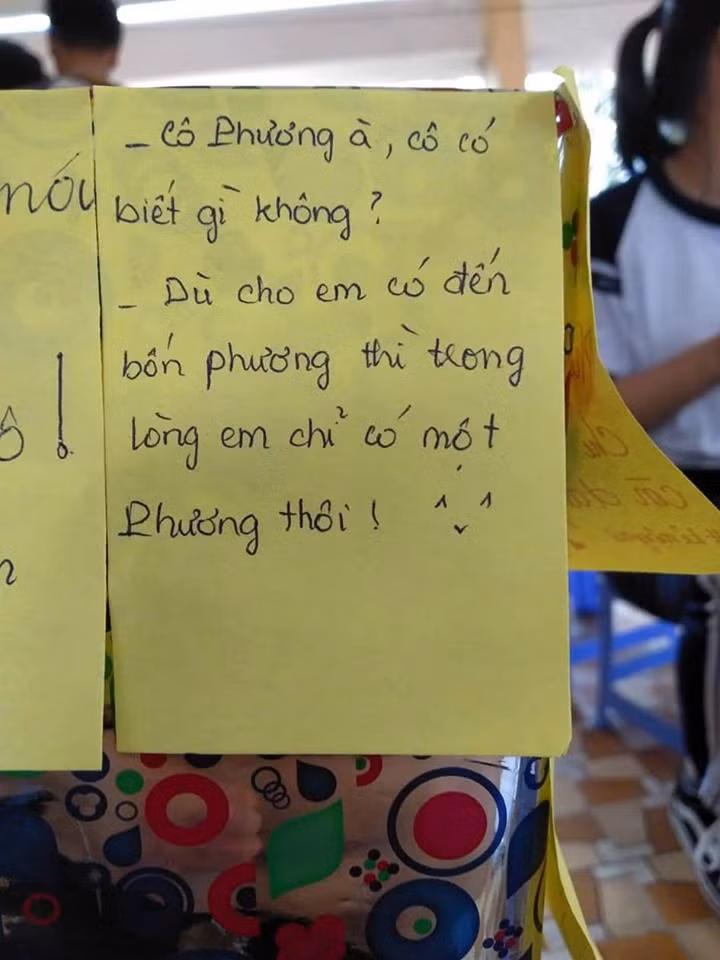 nói
ô !
- Cô Phương à, cô có
biết gì không ?
- Dù cho em có đến
bốn phương thì trong
lòng em chỉ có một
Phương thôi !